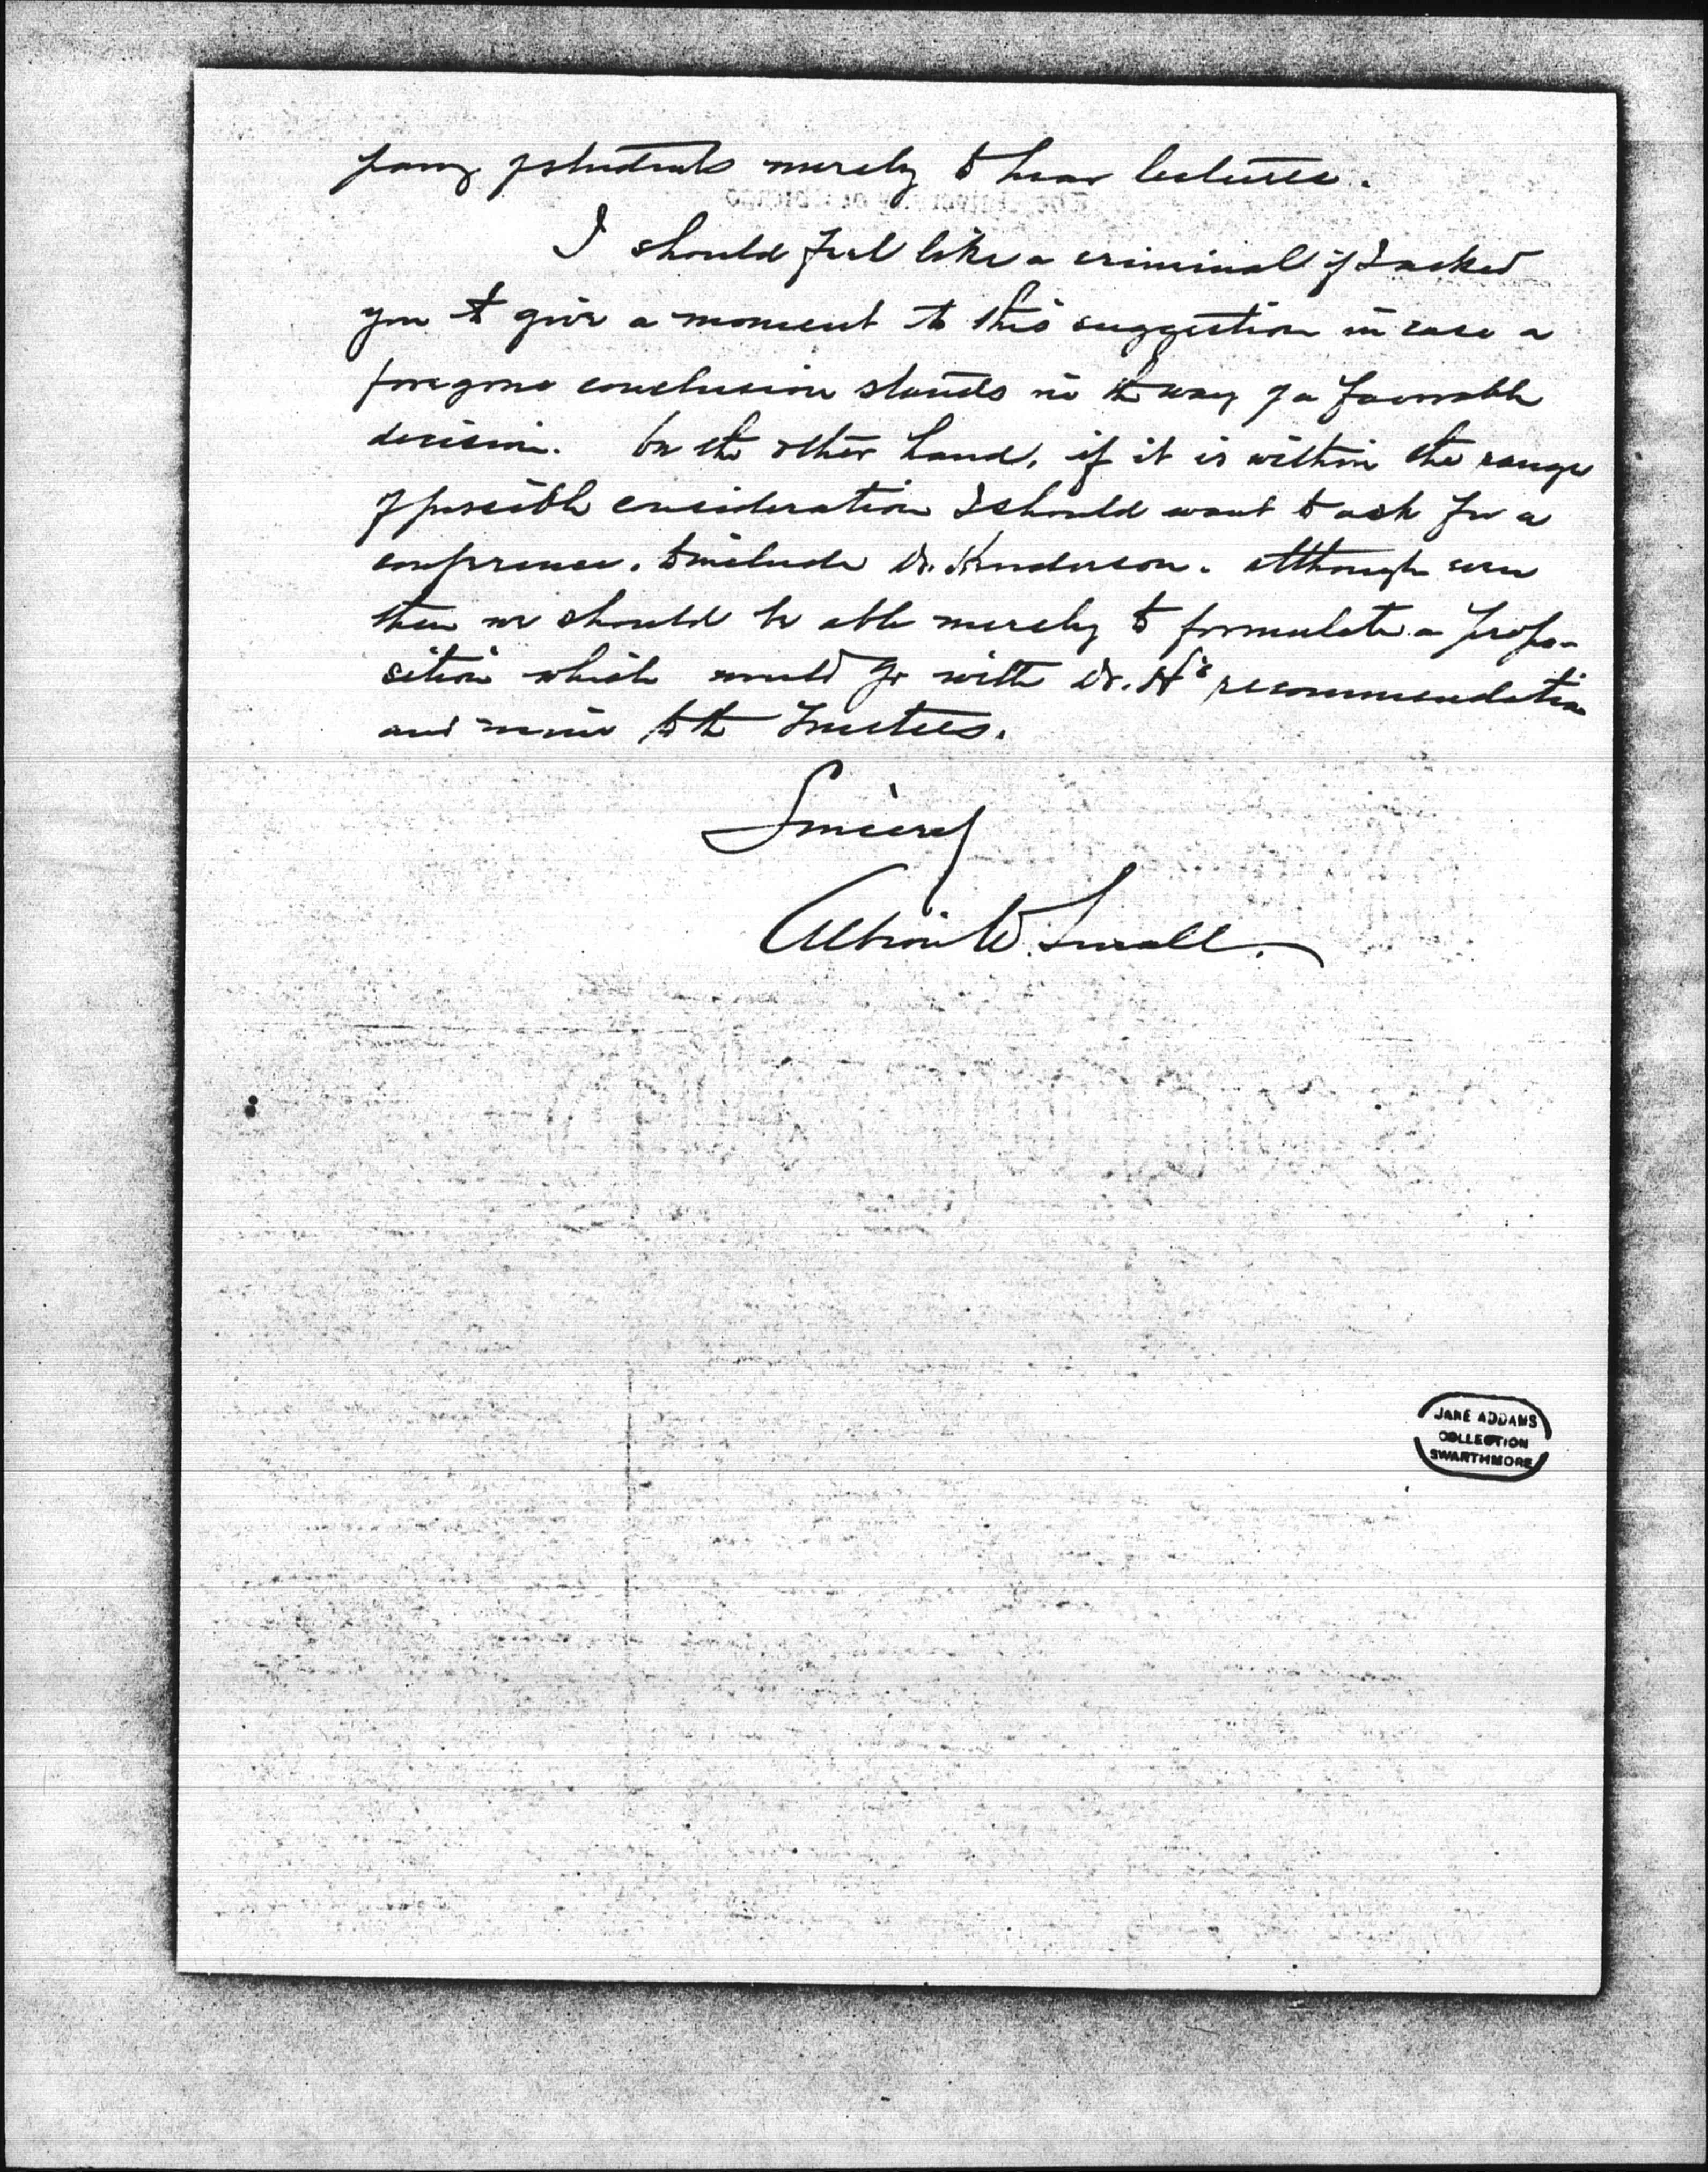 pany of students merely to hear lectures.
I should feel like a criminal if I asked
you to give a moment to this suggestion in case a
foregone conclusion stands in the way of a favorable
decision. On the other hand, if it is within the range
of possible consideration I should want to ask for a
conference, to include Dr. Henderson. although even
then we should be able merely to formulate a propo-
sition which would go with Dr. H's recommendation
and mine to the Trustees.
Sincerely
Albion W. Small.
JANE ADDAMS
COLLECTION
SWARTHMORE